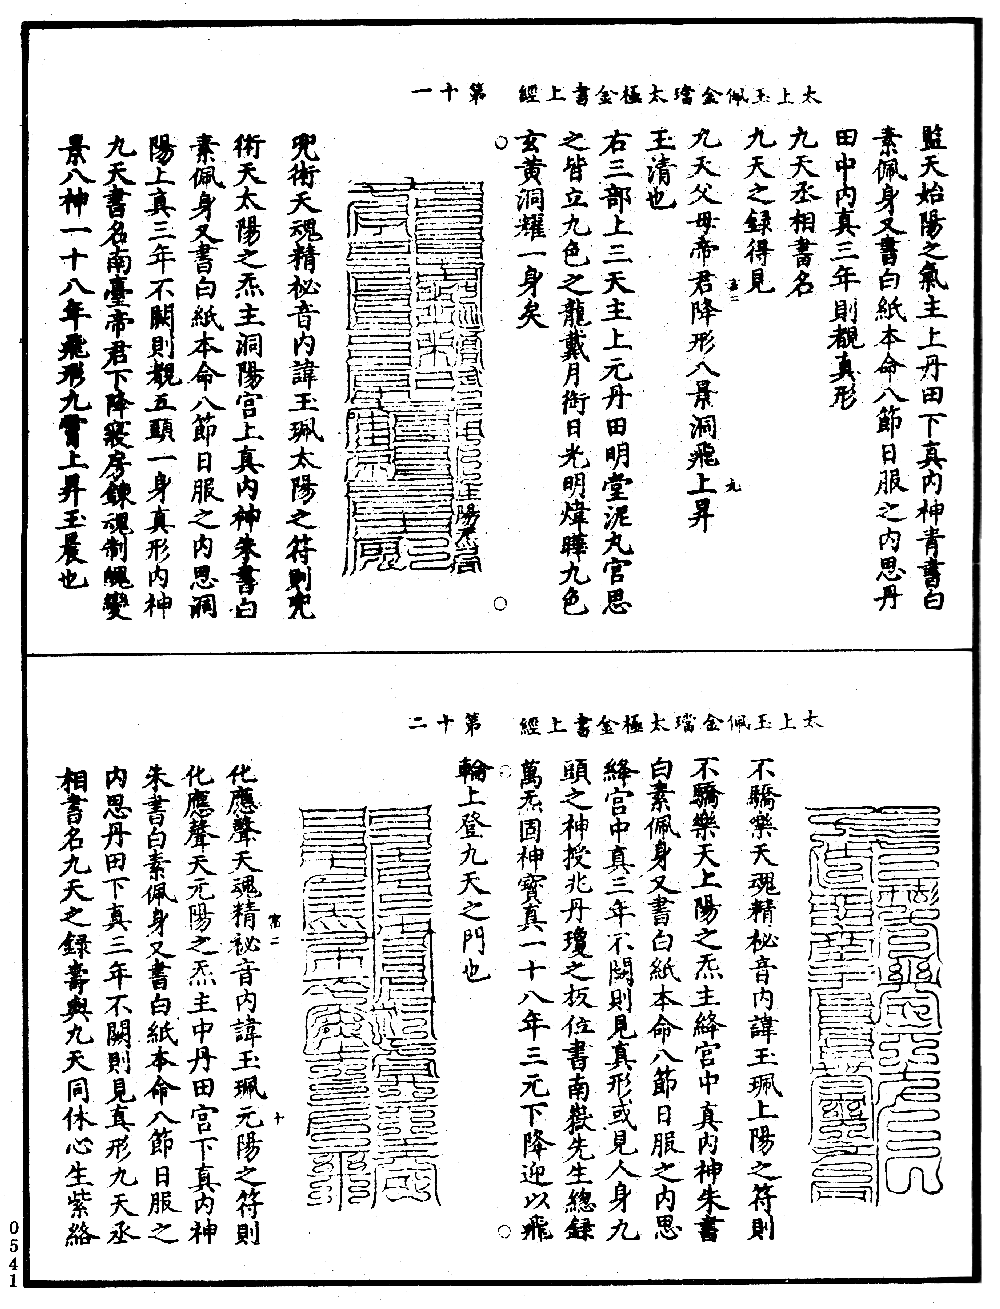 太上玉佩金璫太極金書上經　第十一
監天始陽之氣主上丹田下真內神青書白
素佩身又書白紙本命八節日服之內思丹
田中內真三年則覩真形
九天丞相書名
九天之錄得見
九天父母帝君降形八景洞飛上昇
玉清也
右三部上三天主上元丹田明堂泥丸宮思
之皆立九色之龍戴月銜日光明煒曄九色
玄黃洞耀一身矣
兜術天魂精祕音內諱玉珮太陽之符則兜
術天太陽之炁主洞陽宮上真內神朱書白
素佩身又書白紙本命八節日服之內思洞
陽上真三年不闕則覩五頭一身真形內神
九天書名南臺帝君下降寢房鍊魂制魄變
景八神一十八年飛形九霄上昇玉晨也
太上玉佩金璫太極金書上經　第十二
不驕樂天魂精祕音內諱玉珮上陽之符則
不驕樂天上陽之炁主絳宮中真內神朱書
白素佩身又書白紙本命八節日服之內思
絳宮中真三年不闕則見真形或見人身九
頭之神授兆丹瓊之板位書南嶽先生總錄
萬炁固神寶真一十八年三元下降迎以飛
輪上登九天之門也
化應聲天魂精祕音內諱玉珮元陽之符則
化應聲天元陽之炁主中丹田宮下真內神
朱書白素佩身又書白紙本命八節日服之
內思丹田下真三年不闕則見真形九天丞
相書名九天之錄壽與九天同休心生紫絡
0541